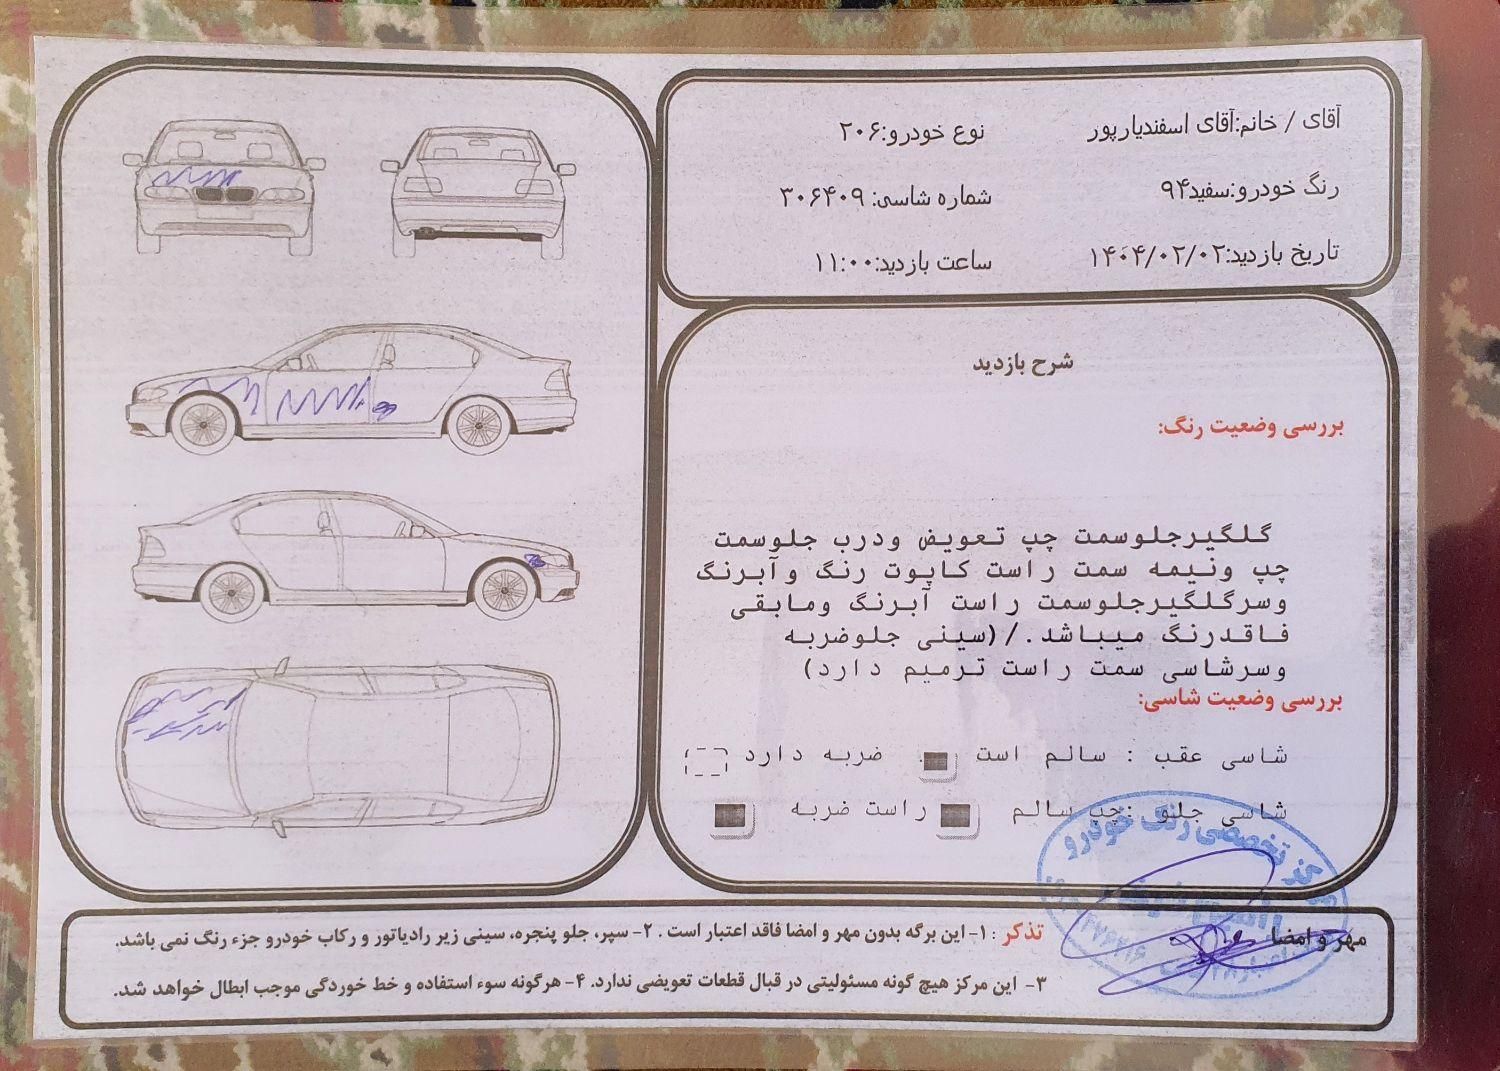 آقای / خانم:آقای اسفندیارپور
نوع خودرو:۲۰۶
رنگ خودرو:سفید۹۴
شماره شاسی: ۳۰۶۴۰۹
تاریخ بازدید:۱۴۰۴/۰۲/۰۲
ساعت بازدید:۱۱:۰۰
شرح بازدید
بررسی وضعیت رنگ:
گلگیرجلوسمت چپ تعویض ودرب جلوسمت
چپ ونیمه سمت راست کاپوت رنگ وآبرنگ
وسرگلگیرجلوسمت راست آبرنگ ومابقی
فاقدرنگ میباشد./(سینی جلوضربه
وسرشاسی سمت راست ترمیم دارد)
بررسی وضعیت شاسی:
شاسی عقب : سالم است ضربه دارد
شاسی جلو :چپ سالم راست ضربه
مرکز تخصصی رنگ خودرو
مهر و امضا
تذکر : ۱- این برگه بدون مهر و امضا فاقد اعتبار است . ۲- سپر، جلو پنجره، سینی زیر رادیاتور و رکاب خودرو جزء رنگ نمی باشد.
۳- این مرکز هیچ گونه مسئولیتی در قبال قطعات تعویضی ندارد. ۴- هرگونه سوء استفاده و خط خوردگی موجب ابطال خواهد شد.